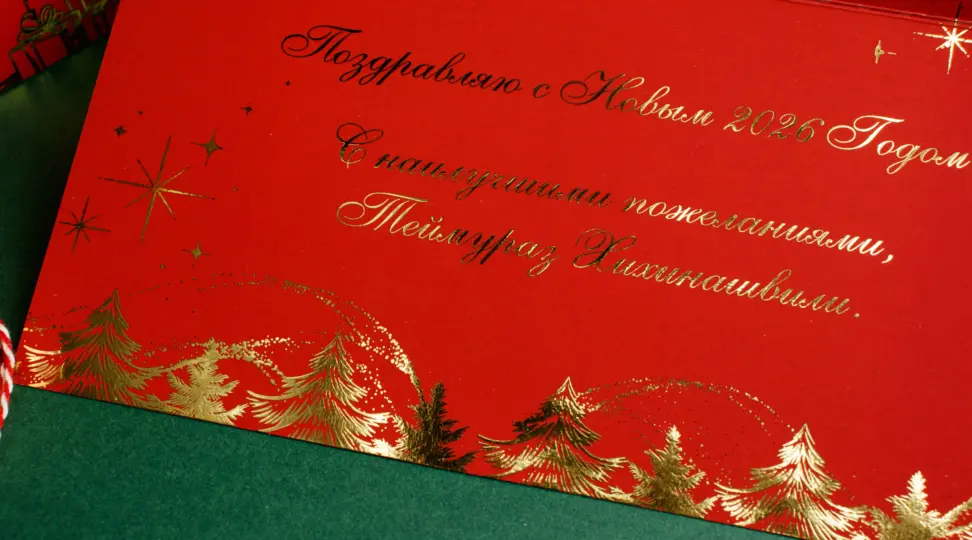 Поздравляю с Новым 2026 Годом
С наилучшими пожеланиями,
Теймураз Хихинашвили.